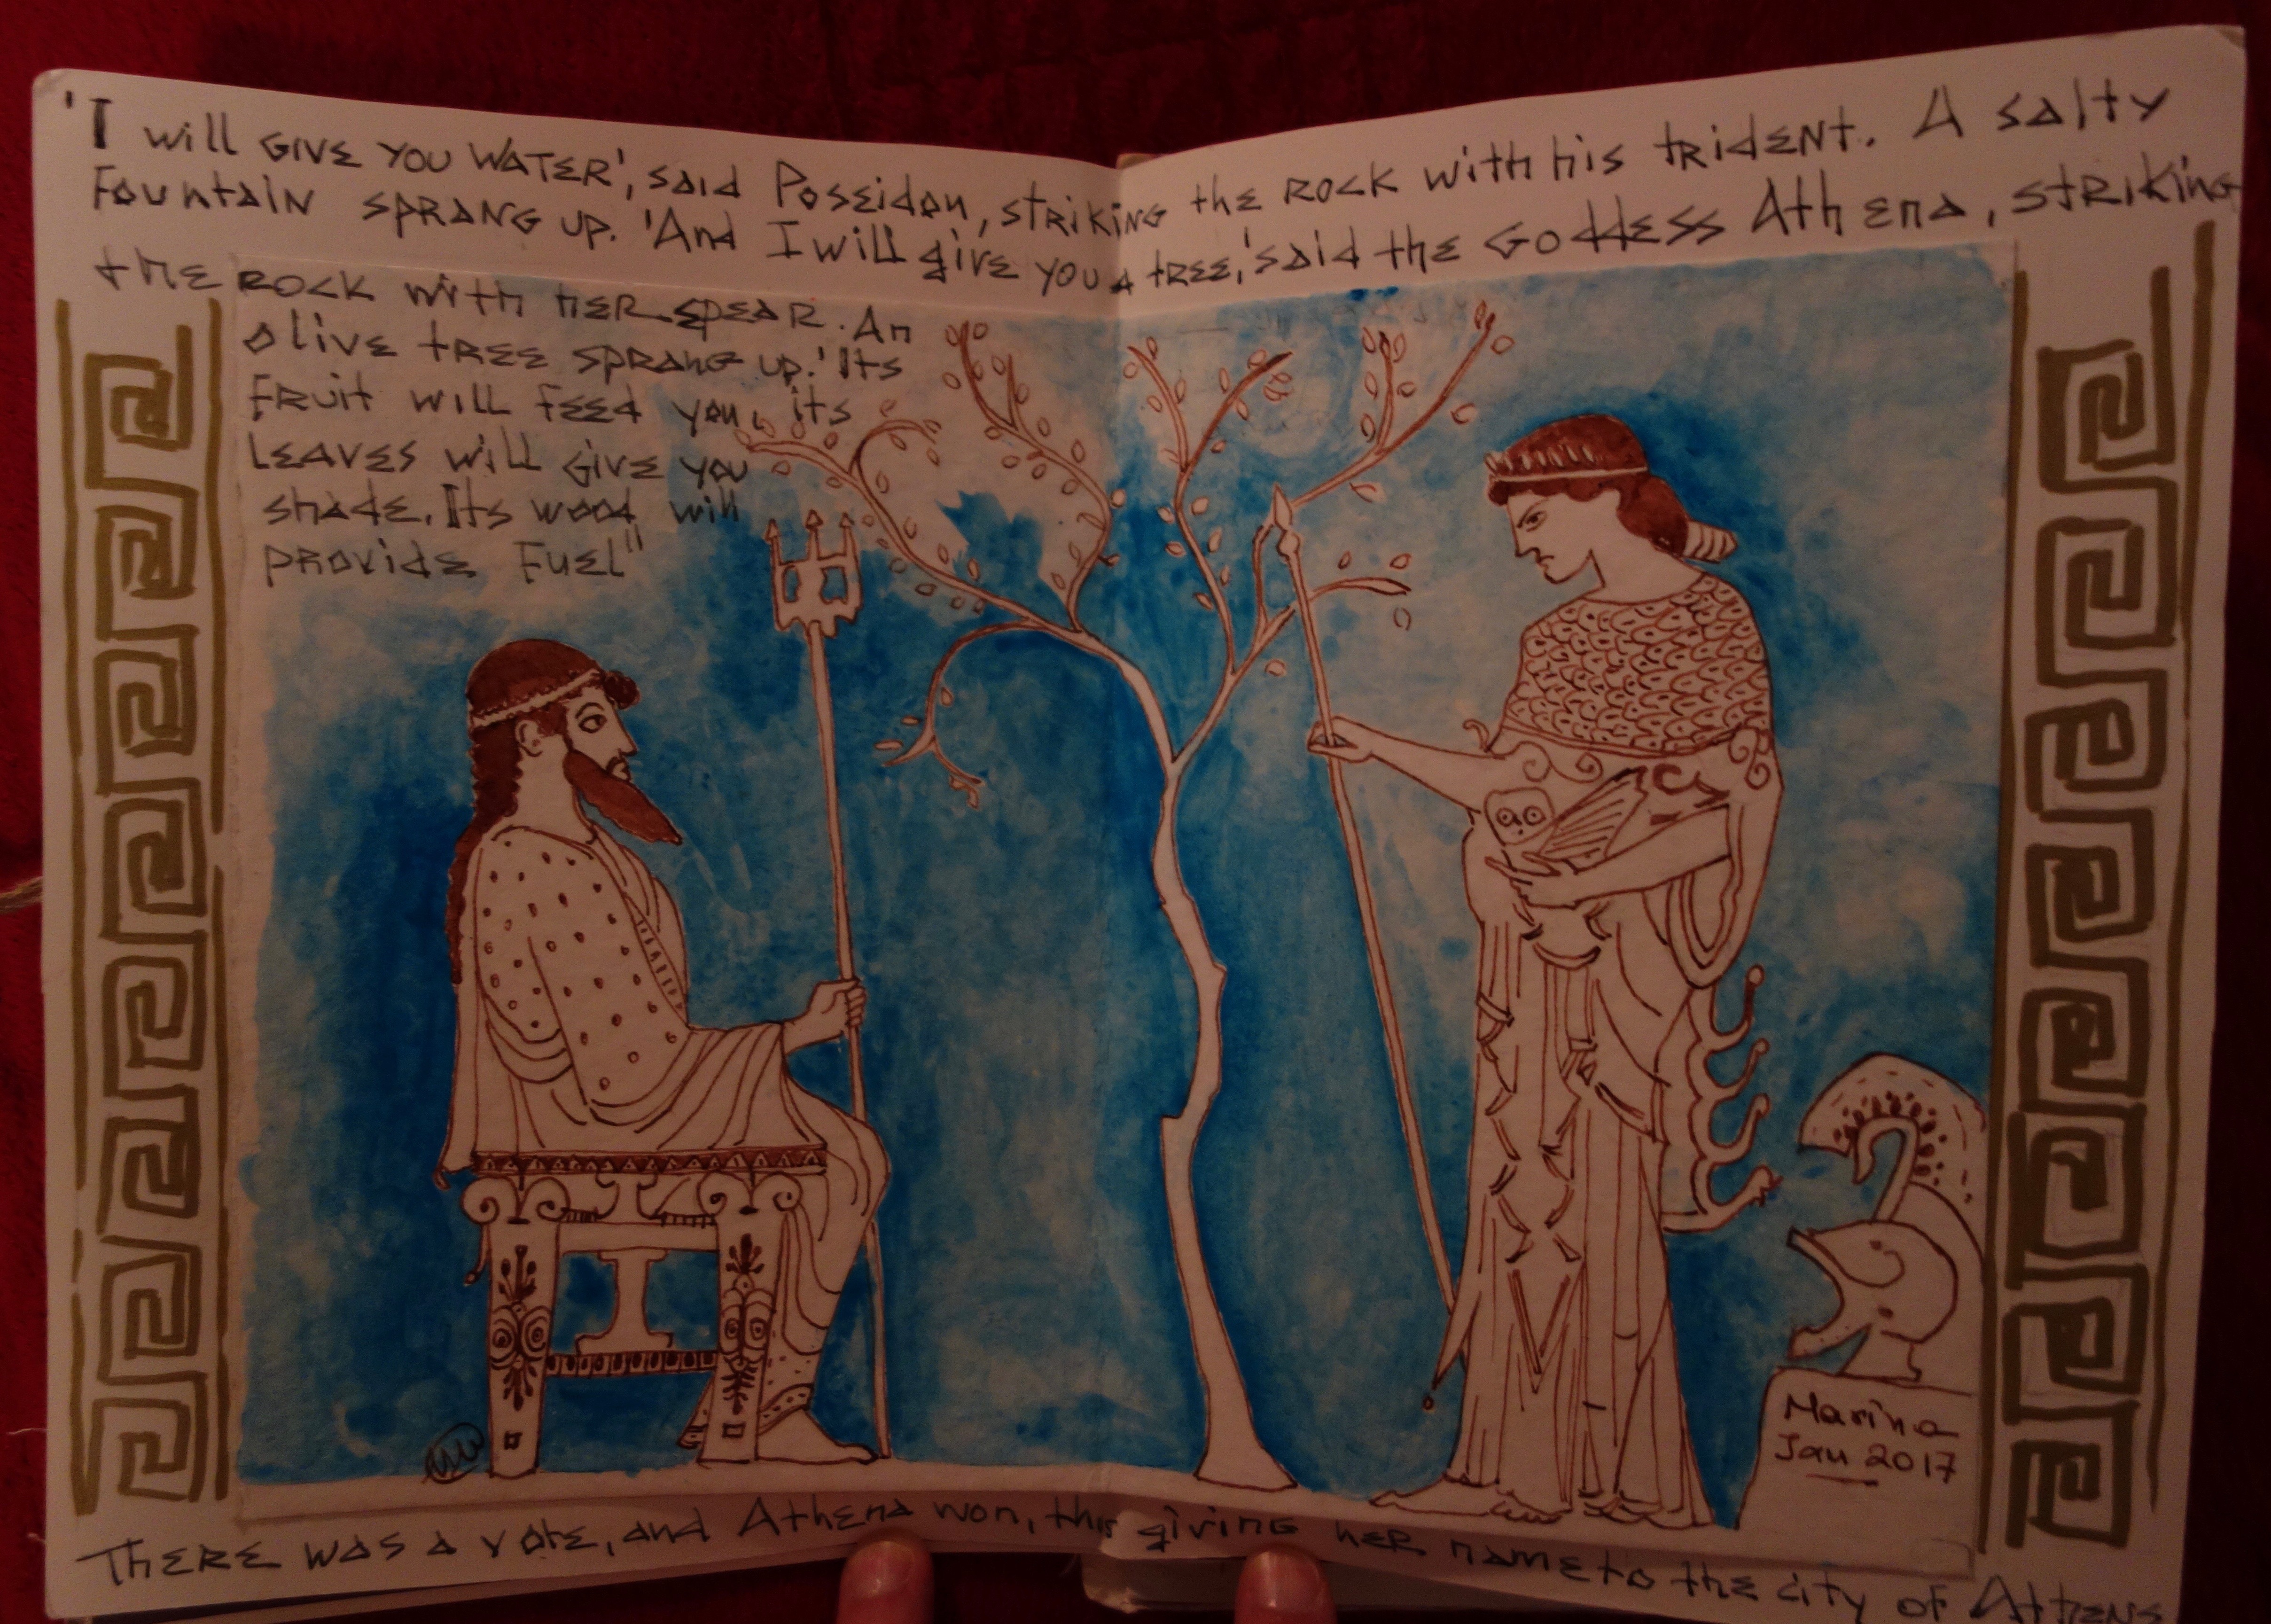 'I will GIVE YOU WATER', said Poseidon, striking the ROCK with his TRIDENT. A salty
Fountain SPRANG UP. 'And I will give you a tree,' said the GODDESS Athena, striking
the ROCK with HER SPEAR. An
olive tree sprang up. 'Its
fruit will feed you, its
leaves will give you
shade. Its wood will
provide fuel"
Marina
Jan 2017
THERE was a vote, and Athena won, this giving her name to the city of Athens